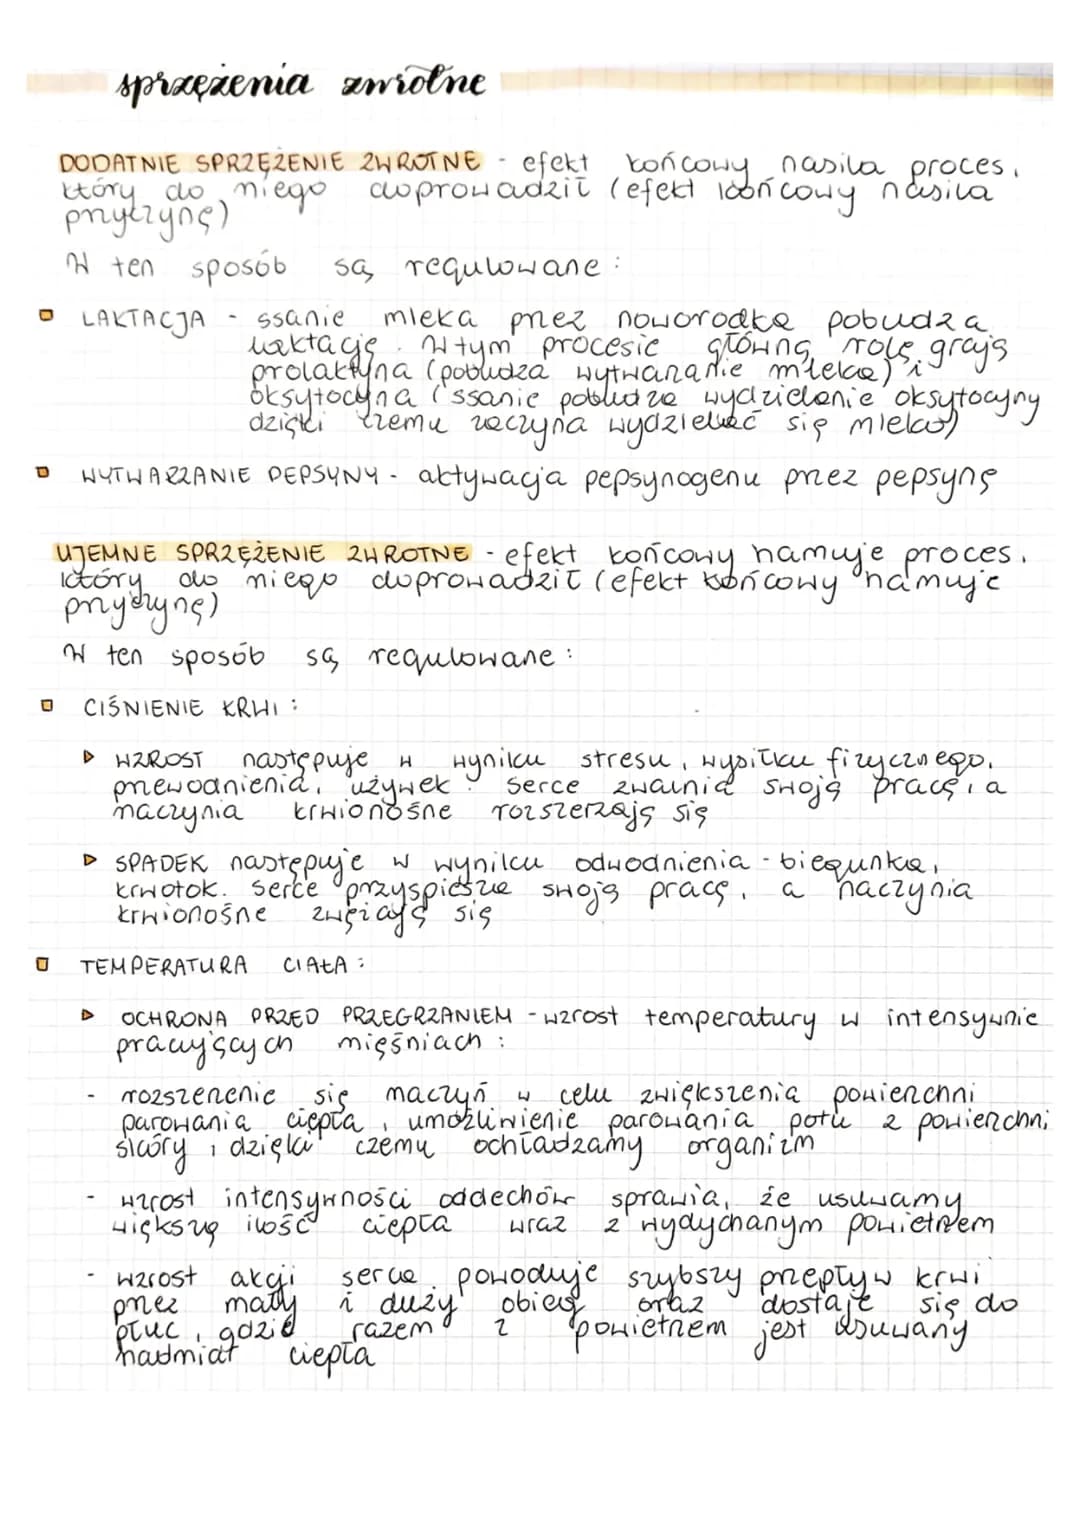 sprzężenia zwrotne
DODATNIE SPRZĘŻENIE ZWROTNE - efekt końcowy nasila proces,
który do niego doprowadził (efekt końcowy nasila
przyczynę)
W ten sposób są regulowane:
LAKTACJA - ssanie mleka przez noworodka pobudza
laktację. W tym procesie główną rolę grają
prolaktyna (pobudza wytwarzanie mleka) i
oksytocyna (ssanie pobudza wydzielanie oksytocyny
dzięki czemu zaczyna wydzielać się mleko)
WYTWARZANIE PEPSYNY - aktywacja pepsynogenu przez pepsynę
UJEMNE SPRZĘŻENIE ZWROTNE - efekt końcowy hamuje proces,
który do niego doprowadził (efekt końcowy hamuje
przyczynę)
W ten sposób są regulowane:
CIŚNIENIE KRWI:
WZROST następuje w wyniku stresu, wysiłku fizycznego,
przewodnienia, używek. Serce zwalnia swoją pracę, a
naczynia krwionośne rozszerzają się
SPADEK następuje w wyniku odwodnienia - biegunka,
krwotok. Serce przyspiesza swoją pracę, a naczynia
krwionośne zwężają się
TEMPERATURA CIAŁA:
OCHRONA PRZED PRZEGRZANIEM - wzrost temperatury w intensywnie
pracujących mięśniach:
- rozszerzenie się naczyń w celu zwiększenia powierzchni
parowania ciepła, umożliwienie parowania potu z powierzchni
skóry, dzięki czemu ochładzamy organizm
- wzrost intensywności oddechów sprawia, że usuwamy
większą ilość ciepła wraz z wydychanym powietrzem
- wzrost akcji serca powoduje szybszy przepływ krwi
przez mały i duży obieg oraz dostaje się do
płuc, gdzie razem z powietrzem jest usuwany
nadmiar ciepła